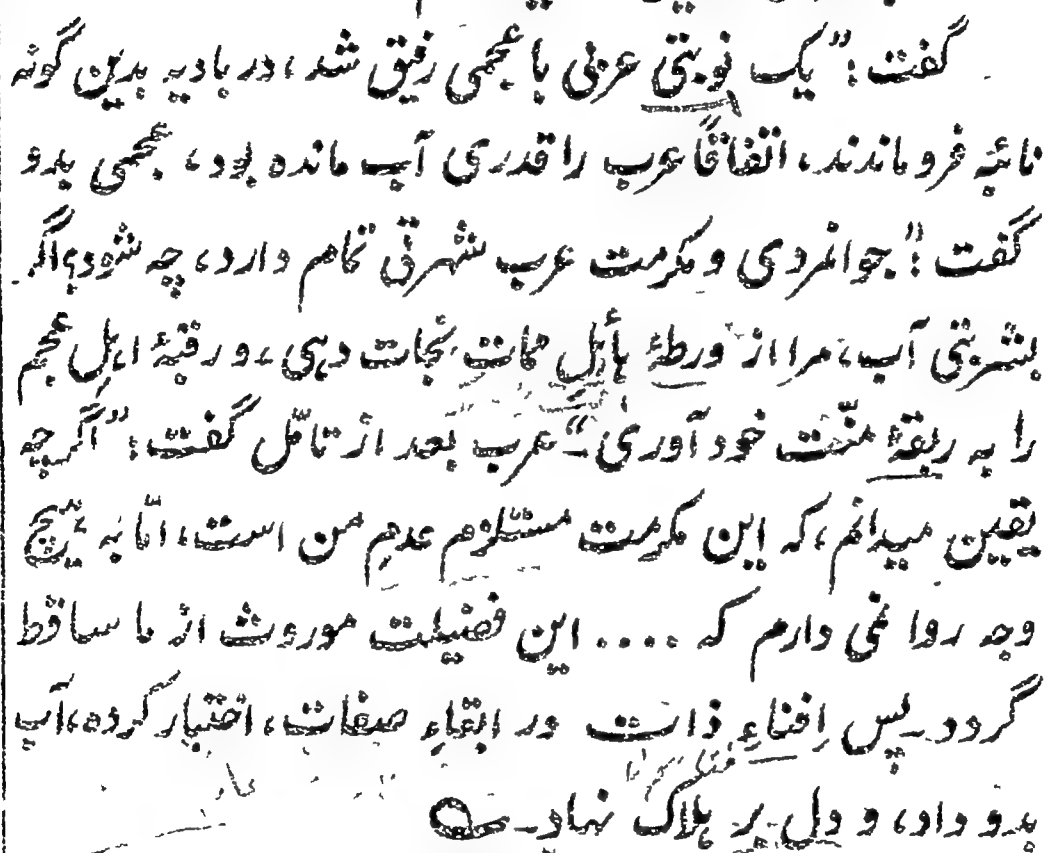 گفت: "یک نوبتی عربی با عجمی رفیق شد، در بادیه بدین گونه
نائبه فروماندند، اتفاقاً عرب را قدری آب مانده بود، عجمی بدو
گفت: "جوانمردی و مکرمت عرب شهرتی تمام دارد، چه شود، اگر
بشربتی آب، مرا از ورطهٔ هائل ممات نجات دہی، و رقبهٔ اہل عجم
را به ربقهٔ منّت خود آوری"۔ عرب بعد از تامّل گفت: "اگرچه
یقین میدانم، که این مکرمت مستلزم عدم من است، امّا به ہیچ
وجه روا نمی دارم که .... این فضیلت موروث از ما ساقط
گردد۔ پس اِفناءِ ذات در ابقاءِ صفات، اختیار کرده، آب
بدو داد، و دل بر ہلاک نہاد۔